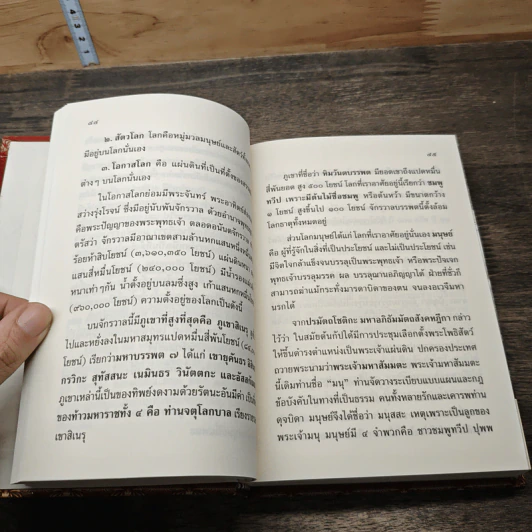 ๘๔
๒. สัตวโลก โลกคือหมู่มวลมนุษย์และสัตว์
มีอยู่บนโลกนั่นเอง
๓. โอกาสโลก คือ แผ่นดินที่เป็นที่ตั้งของ
ต่างๆ บนโลกนั่นเอง
ในโอกาสโลกย่อมมีพระจันทร์ พระอาทิตย์
สว่างรุ่งโรจน์ ซึ่งมีอยู่นับพันจักรวาล ด้วยอำนาจ
คือพระปัญญาของพระพุทธเจ้า ตลอดอนันตจักรวาล
ตรัสว่า จักรวาลมีอาณาเขตสามล้านหกแสนหนึ่งหมื่น
ร้อยห้าสิบโยชน์ (๓,๖๑๐,๓๕๐ โยชน์) แผ่นดินหนา
แสนสี่หมื่นโยชน์ (๒๔๐,๐๐๐ โยชน์) มีน้ำรอง
หนาเท่าๆ กัน น้ำตั้งอยู่บนลมซึ่งสูง เก้าแสนหกหมื่น
(๙๖๐,๐๐๐ โยชน์) ความตั้งอยู่ของโลกเป็นดังนี้
บนจักรวาลนี้มีภูเขาที่สูงที่สุดคือ ภูเขาสิเนรุ
ไปและหยั่งลงในมหาสมุทรแปดหมื่นสี่พันโยชน์
โยชน์) เรียกว่ามหาบรรพต ๗ ได้แก่ เขายุคันธร
กรวิกะ สุทัสสนะ เนมินธร วินัตตกะ และอัสสกัณ
ภูเขาเหล่านี้เป็นของทิพย์งดงามด้วยรัตนะอันมีค่า
ของท้าวมหาราชทั้ง ๔ คือ ท่านจตุโลกบาล
เขาสิเนรุ
๘๕
ภูเขาที่ชื่อว่า หิมวันตบรรพต มียอดเขาถึงแปดหมื่น
สี่พันยอด สูง ๕๐๐ โยชน์ โลกที่เราอาศัยอยู่นี้เรียกว่า ชมพู
ทวีป เพราะมีต้นไม้ชื่อชมพู หรือต้นหว้า มีขนาดกว้าง
๑ โยชน์ สูงขึ้นไป ๑๐๐ โยชน์ จักรวาลบรรพตนี้ตั้งล้อม
โลกธาตุทั้งหมดอยู่
ส่วนโลกมนุษย์ได้แก่ โลกที่เราอาศัยอยู่นั่นเอง มนุษย์
คือ ผู้ที่รู้จักในสิ่งที่เป็นประโยชน์ และไม่เป็นประโยชน์ เช่น
มีจิตใจกล้าแข็งจนบรรลุเป็นพระพุทธเจ้า หรือพระปัจเจก
พุทธเจ้าบรรลุมรรค ผล บรรลุฌานอภิญญาได้ ฝ่ายที่ชั่วก็
สามารถฆ่าแม้กระทั่งมารดาบิดาของตน จนลงอเวจีมหา
นรกได้
จากปรมัตถโชติกะ มหาอภิธัมมัตถสังคหฎีกา กล่าว
ไว้ว่า ในสมัยต้นกัปได้มีการประชุมเลือกตั้งพระโพธิสัตว์
ให้ขึ้นดำรงตำแหน่งเป็นพระเจ้าแผ่นดิน ปกครองประเทศ
ถวายพระนามว่าพระเจ้ามหาสัมมตะ พระเจ้ามหาสัมมตะ
นี้เดิมท่านชื่อ “มนุ” ท่านจัดวางระเบียบแบบแผนและกฎ
ข้อบังคับในทางที่เป็นธรรม คนทั้งหลายรักและเคารพท่าน
ดุจบิดา มนุษย์จึงได้ชื่อว่า มนุสสะ เหตุเพราะเป็นลูกของ
พระเจ้ามนุ มนุษย์มี ๔ จำพวกคือ ชาวชมพูทวีป ปุพพ